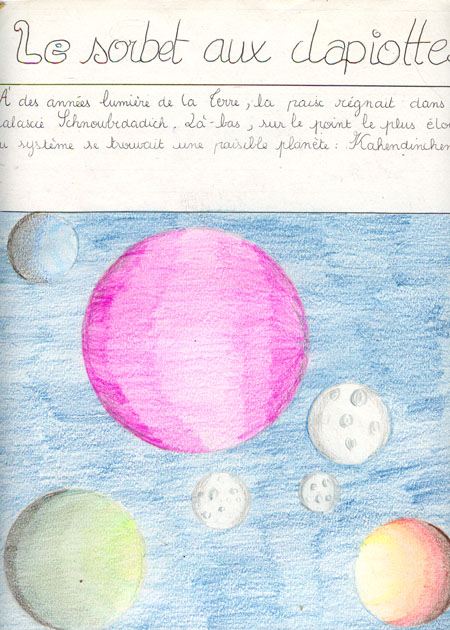 Le sorbet aux clapiotte
A des années lumière de la Terre, la paix régnait dans
alaxie Schnoubrdadich. Là-bas, sur le point le plus élo
u système se trouvait une paisible planète : Kahendinchen